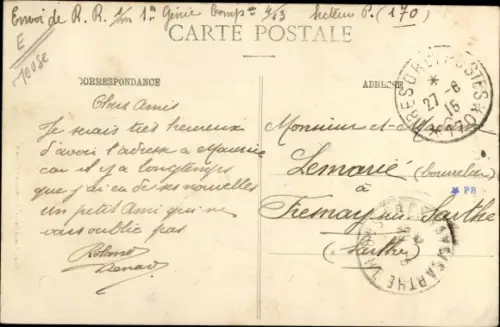 Envoi de R. R. 1er Génie Comp 4/23 Secteur P. (170)
E
Meuse
CARTE POSTALE
CORRESPONDANCE
ADRESSE
TRESOR ET POSTES
*
27-6
15
* 170 *
Chers Amis
Je suis très heureux
d'avoir l'adresse a Maurice
car il y a longtemps
que j'ai eu de ses nouvelles
Un petit Ami qui ne
vous oublie pas
Renard
Monsieur et Madame
Lemarié (bourrelier)
à
Fresnay sur Sarthe
(Sarthe)
* PB
SARTHE